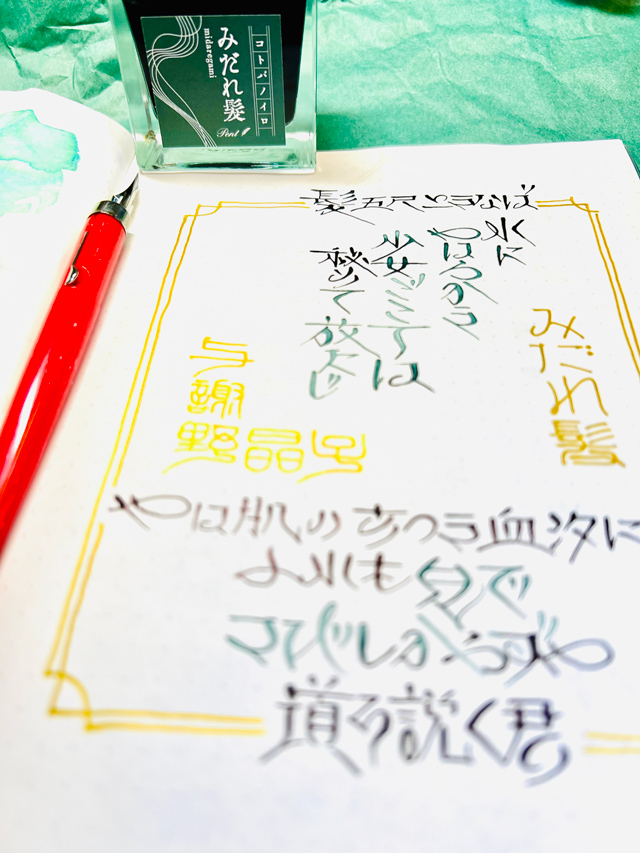 コトバノイロ
みだれ髪
midaregami
Pent
髪五尺ときなば
水に
やはらかき
少女ごころは
秘めて放たじ
みだれ髪
与
謝
野晶子
やは肌のあつき血汐に
ふれも見で
さびしからずや
道を説く君